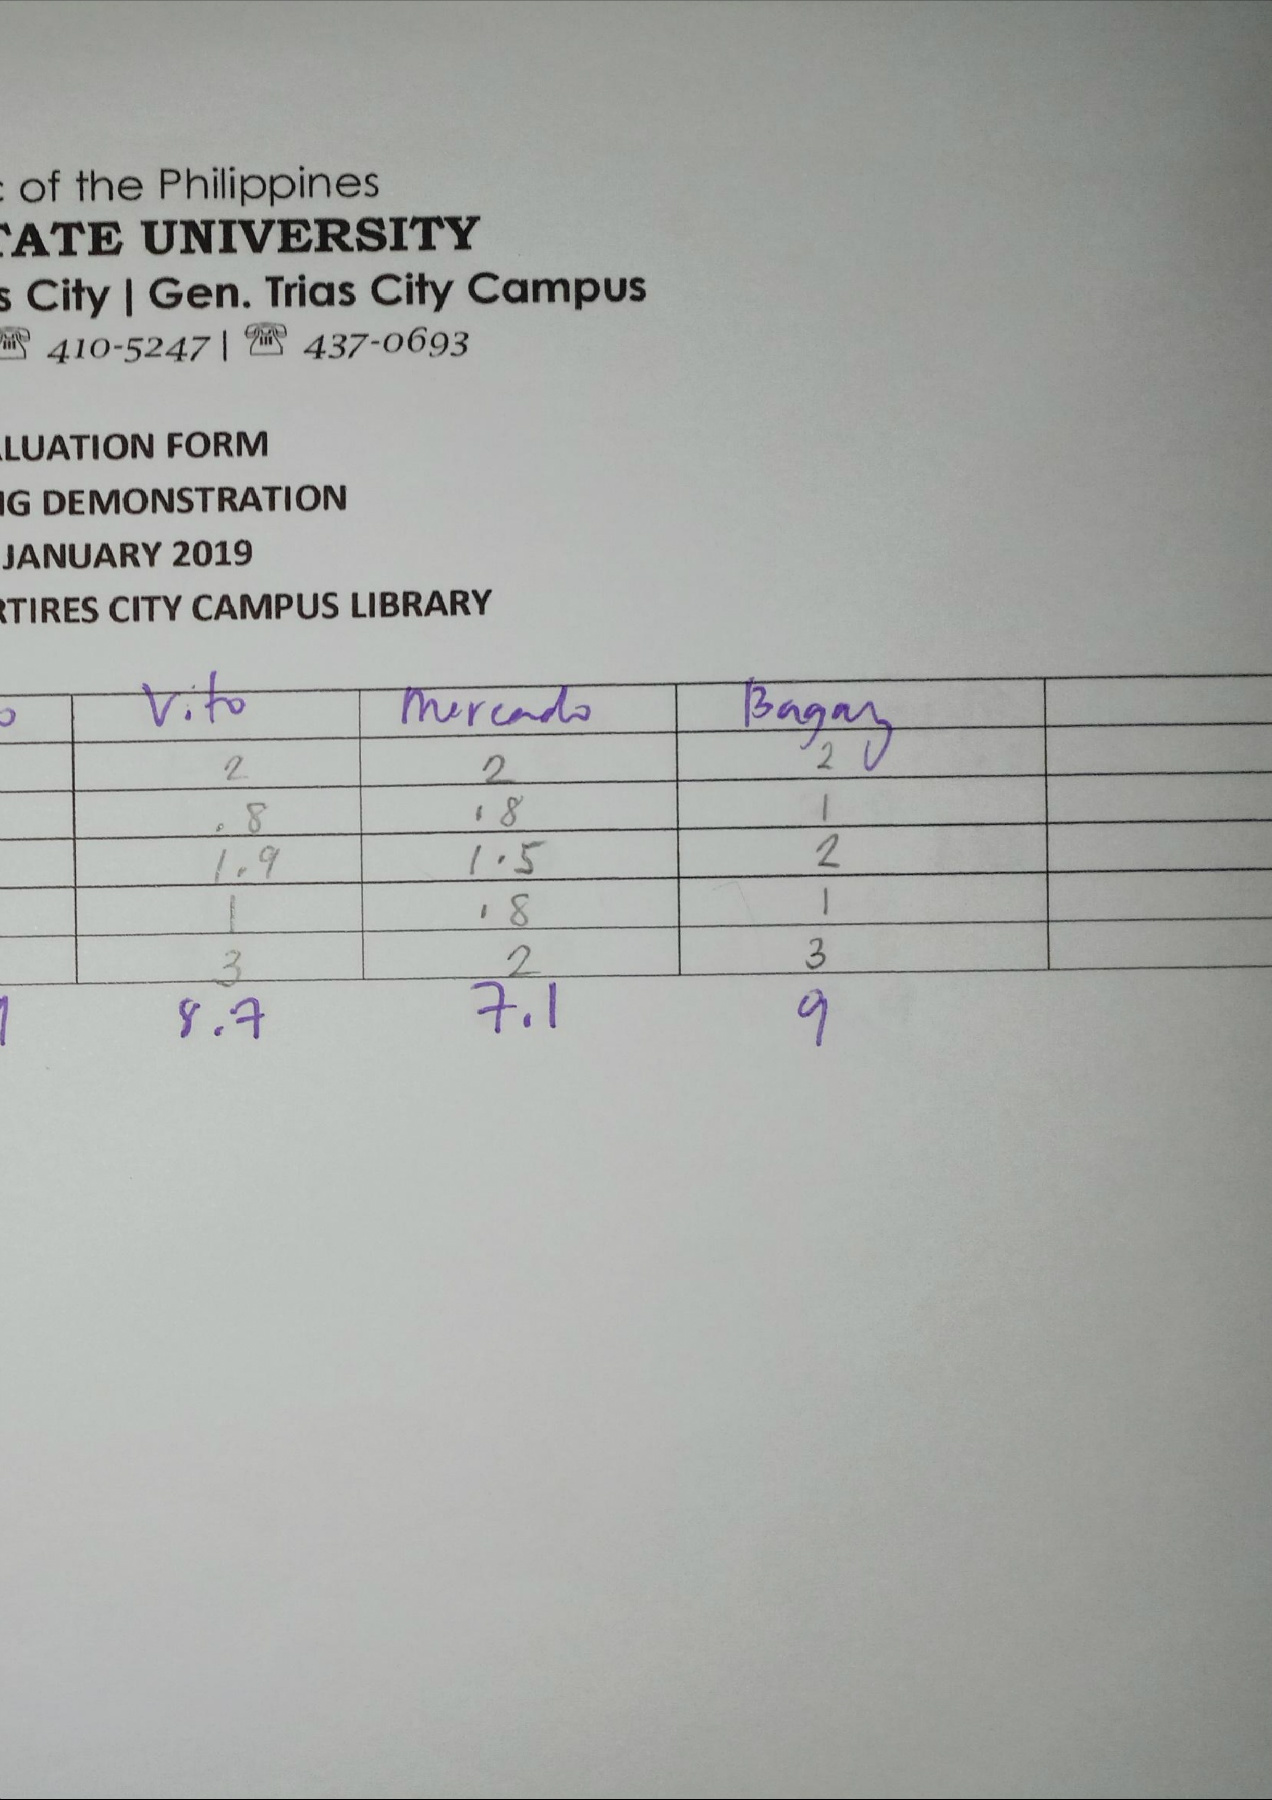 of the Philippines
TATE UNIVERSITY
s City | Gen. Trias City Campus
☏ 410-5247 | ☏ 437-0693
LUATION FORM
NG DEMONSTRATION
JANUARY 2019
RTIRES CITY CAMPUS LIBRARY
o Vito Mercado Bagay
2 2 2
.8 .8 1
1.9 1.5 2
1 .8 1
3 2 3
8.7 7.1 9